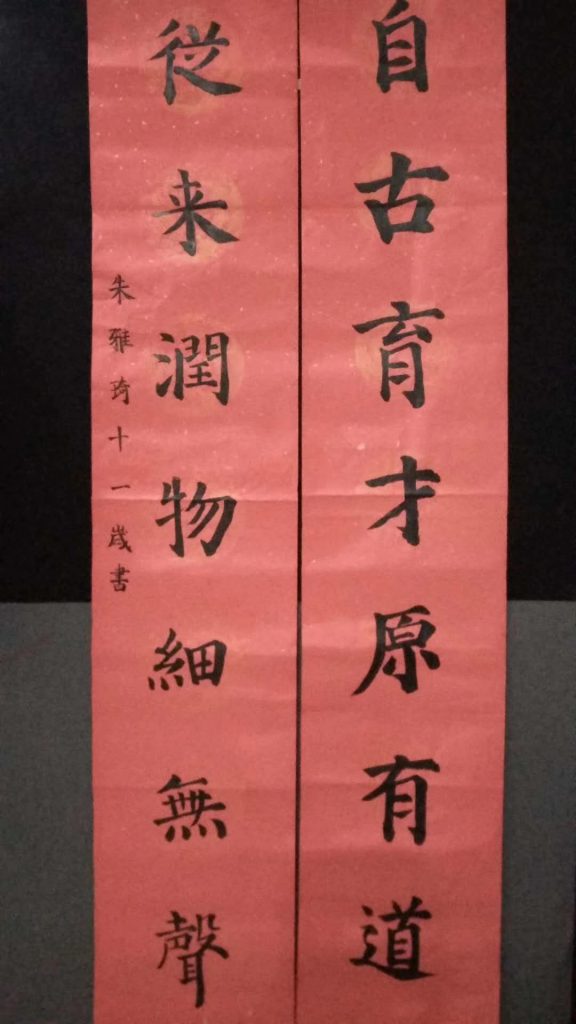 自古育才原有道
從来潤物細無聲
朱雅琦十一歲書